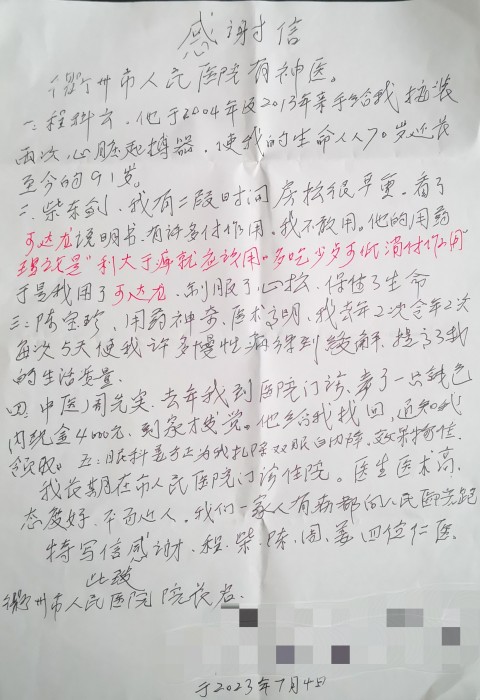 感谢信
衢州市人民医院有神医。
一、程科云，他于2004年及2013年亲手给我按装
两次心脏起搏器，使我的生命从70岁延长
至今的91岁。
二、柴东剑，我有一段时间房松很早重，看了
可达龙说明书有许多付作用，我不敢用。他的用药
是"利大于海就应该用"多吃少卢可低消付作用"
于是我用了可达龙，制服了心松，保住了生命
三、陈宝珍，用药神奇、医术高明，我去年2次今年2次
每次5天使我许多慢性病得到缓解，提高了我
的生活质量。
四、中医周先宾，去年我到医院门诊，带了一只钱包
内现金4000元，到家才发觉。他给我找回，通知我
领取。五、眼科姜方正为我扎除双眼白内障，效果特佳。
我长期在市人民医院门诊住院。医生医术高，
态度好，平易近人。我们一家人有病都向人民医院跑
特写信感谢，程、柴、陈、周、姜四位仁医。
此致
衢州市人民医院院长名。
于2023年7月4日